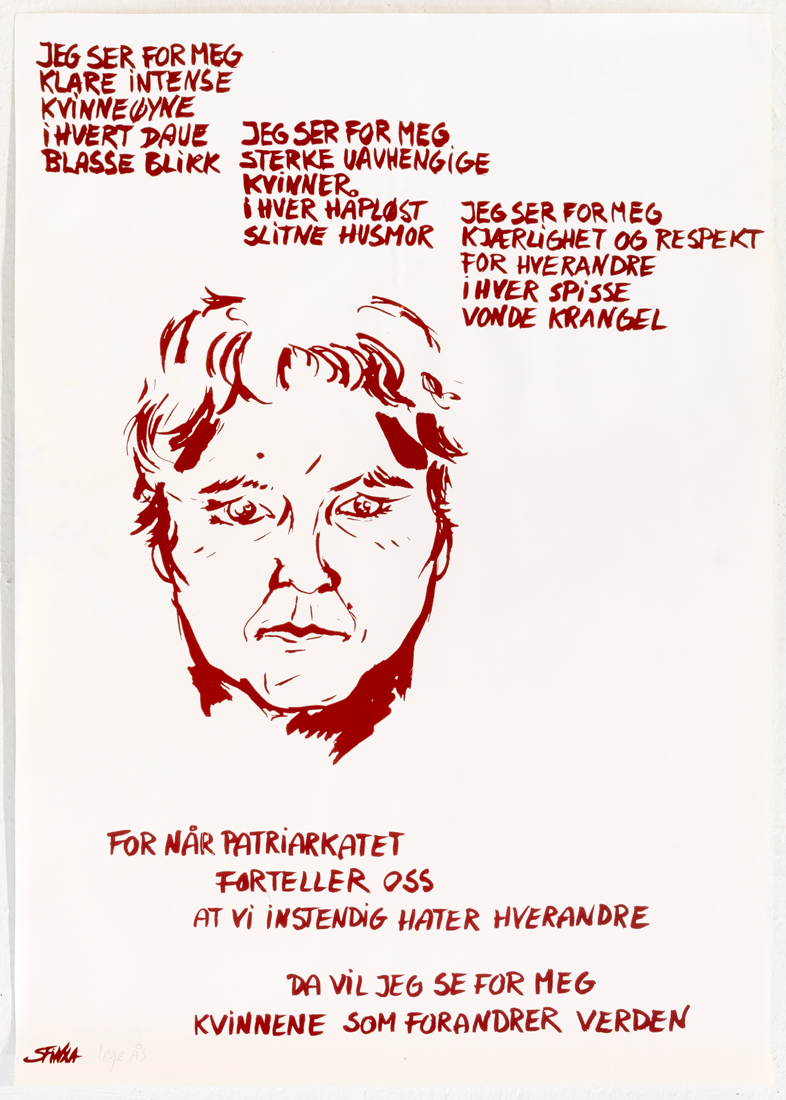 JEG SER FOR MEG
KLARE INTENSE
KVINNEØYNE
I HVERT DAUE
BLASSE BLIKK
JEG SER FOR MEG
STERKE UAVHENGIGE
KVINNER.
I HVER HÅPLØST
SLITNE HUSMOR
JEG SER FOR MEG
KJÆRLIGHET OG RESPEKT
FOR HVERANDRE
I HVER SPISSE
VONDE KRANGEL
FOR NÅR PATRIARKATET
FORTELLER OSS
AT VI INSTENDIG HATER HVERANDRE
DA VIL JEG SE FOR MEG
KVINNENE SOM FORANDRER VERDEN